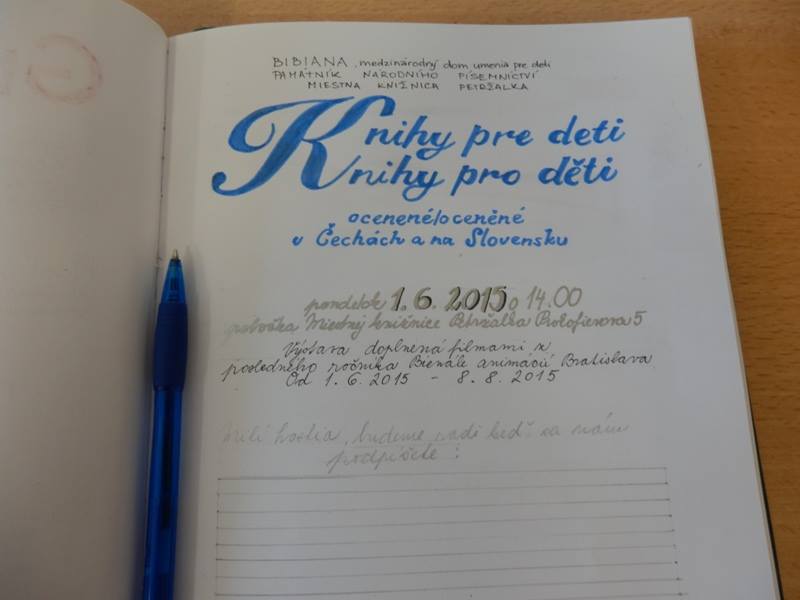 BIBIANA, medzinárodný dom umenia pre deti
PAMÁTNÍK NÁRODNÍHO PÍSEMNICTVÍ
MIESTNA KNIŽNICA PETRŽALKA
Knihy pre deti
Knihy pro děti
ocenené/oceněné
v Čechách a na Slovensku
pondelok 1.6. 2015 o 14.00
pobočka Miestnej knižnice Petržalka Prokofievova 5
Výstava doplnená filmami z
posledného ročníka Bienále animácií Bratislava
Od 1.6.2015 - 8.8.2015
Milí hostia, budeme radi keď sa nám
podpíšete!